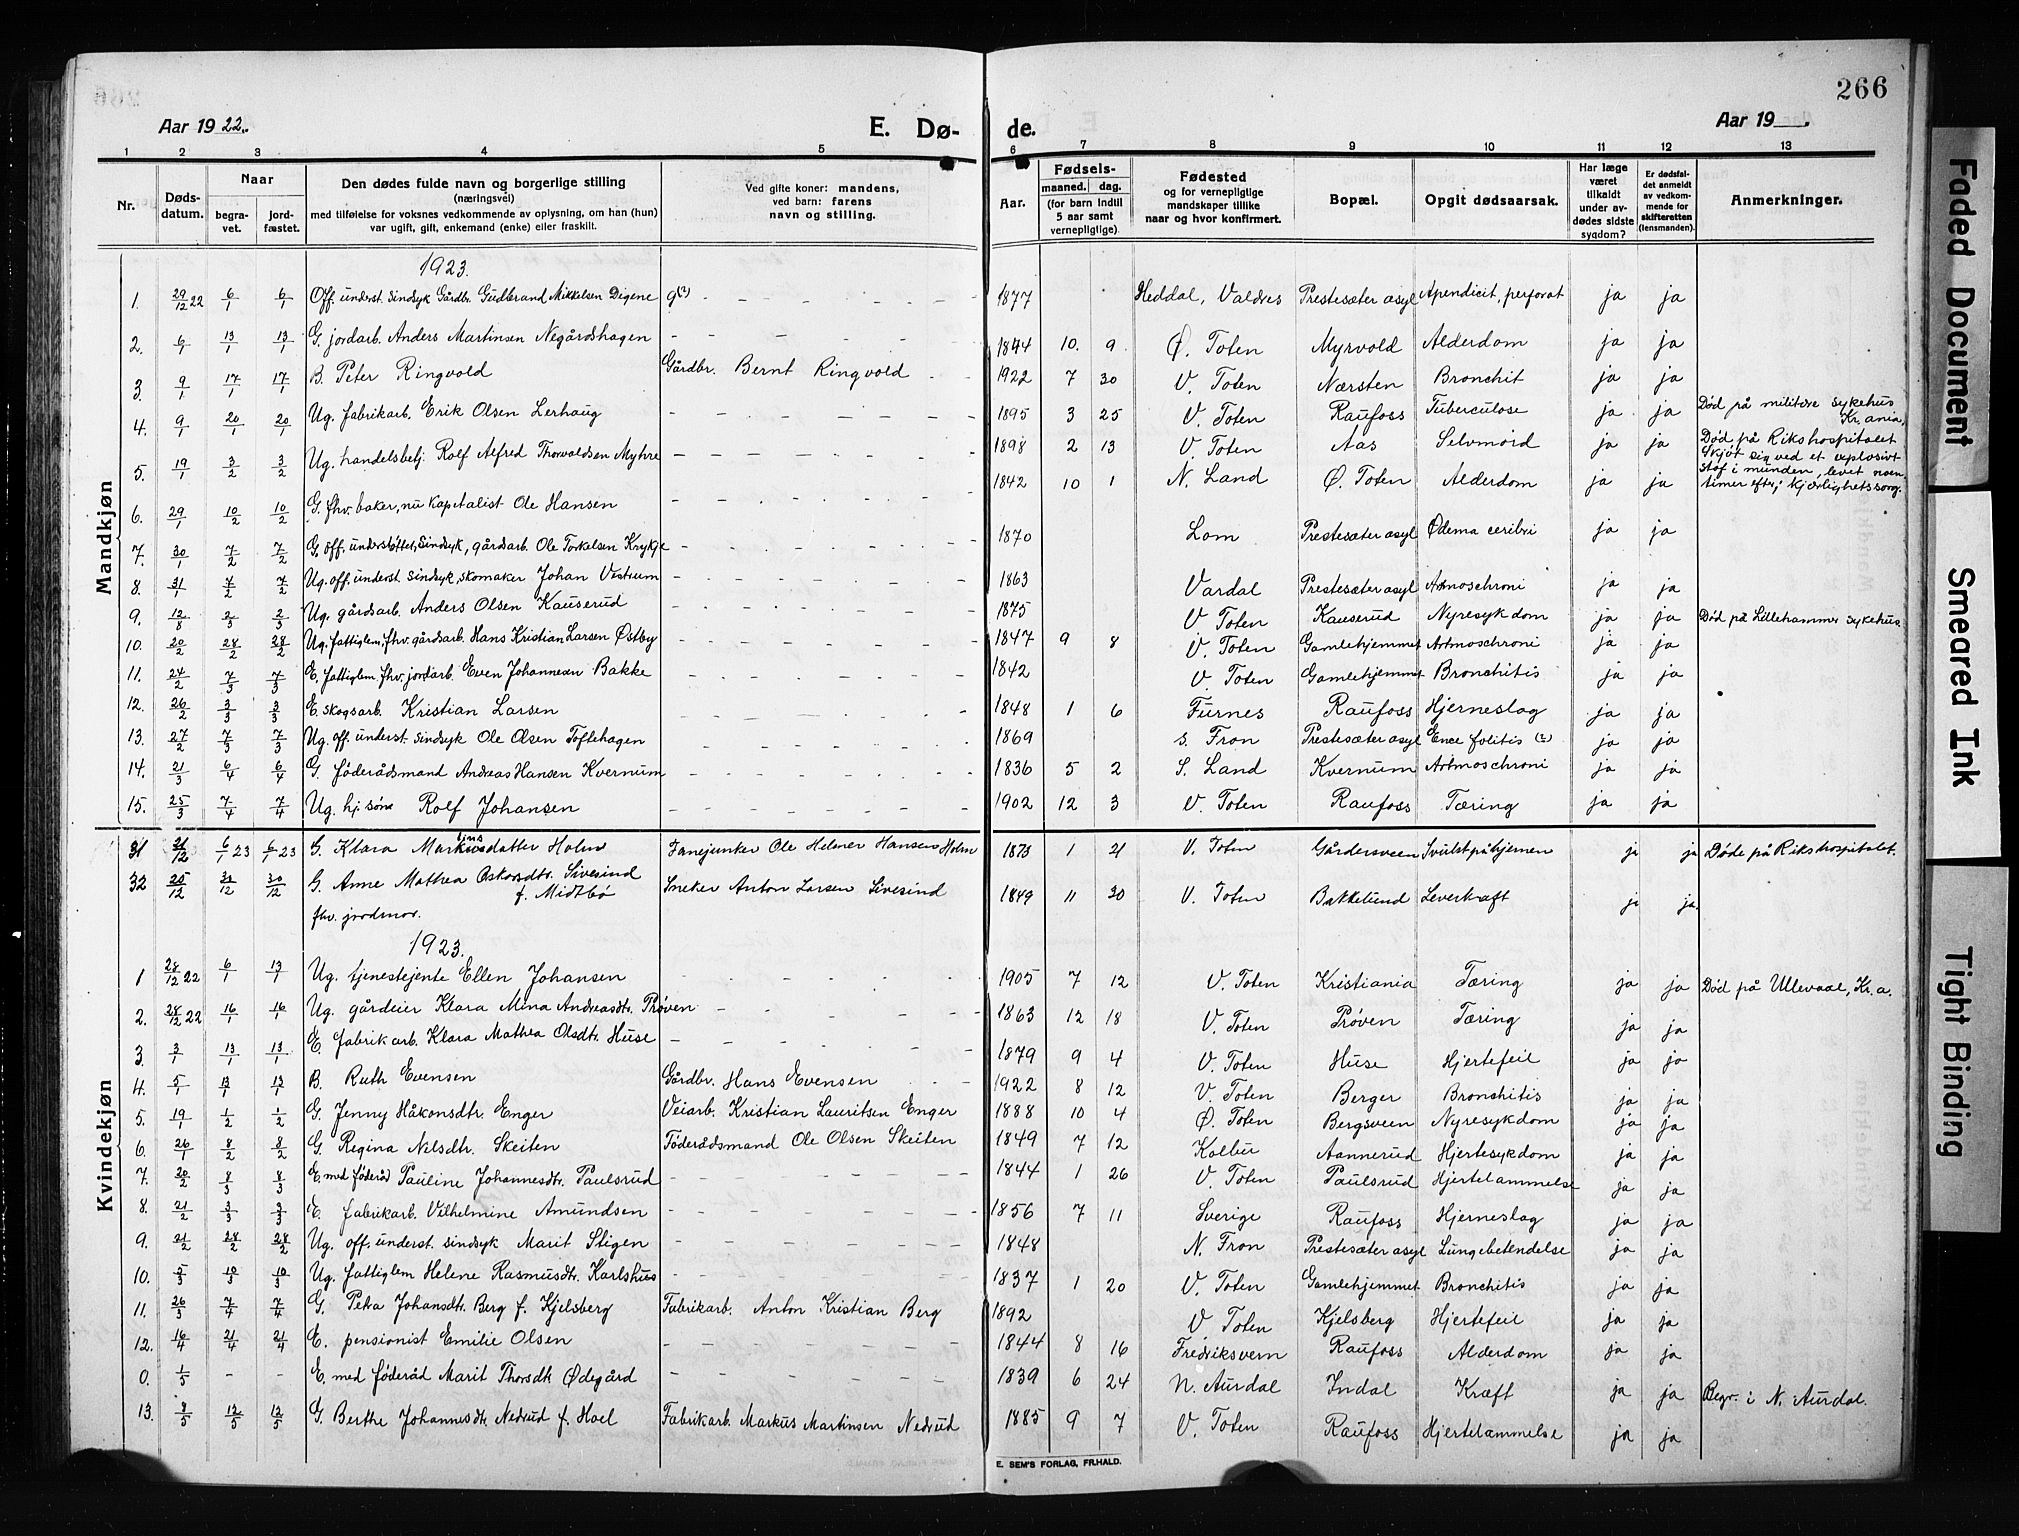 266
Aar 19 22.
E. Dø-
de.
Aar 19
1 2 3 4 5 6 7 8 9 10 11 12 13
Nr. Døds-datum. Naar begra-vet. jord-fæstet. Den dødes fulde navn og borgerlige stilling (næringsvei) med tilføielse for voksnes vedkommende av oplysning, om han (hun) var ugift, gift, enkemand (enke) eller fraskilt. Ved gifte koner: mandens, ved barn: farens navn og stilling. Aar. Fødsels- maaned. dag. (for barn indtil 5 aar samt vernepligtige). Fødested og for vernepligtige mandskaper tillike naar og hvor konfirmert. Bopæl. Opgit dødsaarsak. Har læge været tilkaldt under av-dødes sidste sygdom? Er dødsfal-det anmeldt av vedkom-mende for skifteretten (lensmanden). Anmerkninger.
Mandkjøn
1923.
1. 29/12 22 6/1 6/1 Off. underst. sindsyk Gårdbr. Gudbrand Mikkelsen Digene g(?) 1877 Heddal, Valdres Prestesæter asyl Apendicit, perforat ja ja
2. 6/1 13/1 13/1 G. jordarb. Anders Martinsen Negårdshagen 1844 10. 9 Ø. Toten Myrvold Alderdom ja ja
3. 9/1 17/1 17/1 B. Peter Ringvold Gårdbr. Bernt Ringvold 1922 7 30 V. Toten Nærsten Bronchit ja ja
4. 9/1 20/1 20/1 Ug. fabrikarb. Erik Olsen Lerhaug 1895 3 25 V. Toten Raufoss Tuberculose ja ja Død på militære sykehus Kr.ania,
5. 19/1 3/2 3/2 Ug. handelsbetj. Rolf Alfred Thorvaldsen Myhre 1898 2 13 V. Toten Aas Selvmord ja ja Død på Rikshospitalet skjöt sig ved et explosivt stof i munden, levet noen timer efter, kjærlighetssorg.
6. 29/1 10/2 10/2 G. fhv. baker, nu kapitalist Ole Hansen 1842 10 1 N. Land Ø. Toten Alderdom ja ja
7. 30/1 7/2 7/2 G. off. understøttet, sindsyk, gårdsarb. Ole Torkelsen Krykje 1870 Lom Prestesæter asyl Ødema ceribri ja ja
8. 31/1 7/2 7/2 Ug. off. underst. sindsyk, skomaker Johan Vestrum 1863 Vardal Prestesæter asyl Artmoschroni ja ja
9. 12/8 2/3 2/3 Ug. gårdsarb. Anders Olsen Kauserud 1875 V. Toten Kauserud Nyresykdom ja ja Død på Lillehammer sykehus
10. 20/2 28/2 28/2 Ug. fattiglem, fhv. gårdsarb. Hans Kristian Larsen Østby 1847 9 8 V. Toten Gamlehjemmet Artmoschroni ja ja
11. 24/2 7/3 7/3 E. fattiglem, fhv. jordarb. Even Johannesen Bakke 1842 V. Toten Gamlehjemmet Bronchitis ja ja
12. 26/2 3/3 3/3 E. skogsarb. Kristian Larsen 1848 1 6 Furnes Raufoss Hjerneslag ja ja
13. 27/2 7/3 7/3 Ug. off. underst. sindsyk Ole Olsen Toftehagen 1869 S. Fron Prestesæter asyl Ence folitis (?) ja ja
14. 21/3 6/4 6/4 G. föderådsmand Andreas Hansen Kvernum 1836 5 2 S. Land Kvernum Artmoschroni ja ja
15. 25/3 7/4 7/4 Ug. hj. søn Rolf Johansen 1902 12 3 V. Toten Raufoss Tæring ja ja
Kvindekjøn
31 21/12 6/1 23 6/1 23 G. Klara Markusdatter Holm Fanejunker Ole Helmer Hansen Holm 1873 1 21 V. Toten Gårdersveen Svulst på hjernen ja ja Døde på Rikshospitalet.
32 25/12 30/12 30/12 G. Anne Mathea Oskarsdtr. Sivesind f. Midtbö Sneker Anton Larsen Sivesind 1849 11 30 V. Toten Bakkelund Leverkræft ja ja.
fhv. jordmor.
1923.
1 28/12 22 6/1 13/1 Ug. tjenestejente Ellen Johansen 1905 7 12 V. Toten Kristiania Tæring ja ja Død på Ullevaal, Kr.a.
2. 28/12 22 16/1 16/1 Ug. gårdeier Klara Mina Andreasdtr. Pröven 1863 12 18 V. Toten Pröven Tæring ja ja
3. 3/1 13/1 13/1 E. fabrikarb. Klara Mathea Olsdtr. Huse 1879 9 4 V. Toten Huse Hjertefeil ja ja
4. 5/1 13/1 13/1 B. Ruth Evensen Gårdbr. Hans Evensen 1922 8 12 V. Toten Berger Bronchitis ja ja
5. 19/1 1/2 1/2 G. Jenny Håkonsdtr. Enger Veiarb. Kristian Lauritsen Enger 1888 10 4 Ø. Toten Bergsveen Nyresykdom ja ja
6. 26/1 8/2 8/2 G. Regina Nilsdtr. Skeiten Föderådsmand Ole Olsen Skeiten 1849 7 12 Kolbu Aannerud Hjertesykdom ja ja
7. 20/2 8/3 8/3 E. med föderåd Pauline Johannesdtr. Paulsrud 1844 1 26 V. Toten Paulsrud Hjertelammelse ja ja
8. 21/2 3/3 3/3 E. fabrikarb. Vilhelmine Amundsen 1856 7 11 Sverige Raufoss Hjerneslag ja ja
9. 21/2 28/2 28/2 Ug. off. underst. sindsyk Marit Stigen 1848 N. Fron Prestesæter asyl Lungebetendelse ja ja
10. 5/3 10/3 10/3 Ug. fattiglem Helene Rasmusdtr. Karlshus 1837 1 20 V. Toten Gamlehjemmet Bronchitis ja ja
11. 26/3 7/4 7/4 G. Petra Johansdtr. Berg f. Kjelsberg Fabrikarb. Anton Kristian Berg 1892 V. Toten Kjelsberg Hjertefeil ja ja
12. 16/4 21/4 21/4 E. pensionist Emilie Olsen 1844 8 16 Fredriksvern Raufoss Alderdom ja ja
0. 1/5 - - E. med föderåd Marit Thorsdtr Ødegård 1839 6 24 N. Aurdal Indal Kræft ja ja Begr. i N. Aurdal.
13. 8/5 12/5 12/5 G. Berthe Johannesdtr. Nedrud f. Hoel Fabrikarb. Markus Martinsen Nedrud 1885 9 7 V. Toten Raufoss Hjertelammelse ja ja
E. SEM'S FORLAG, FR.HALD.
Faded Document
Smeared Ink
Tight Binding